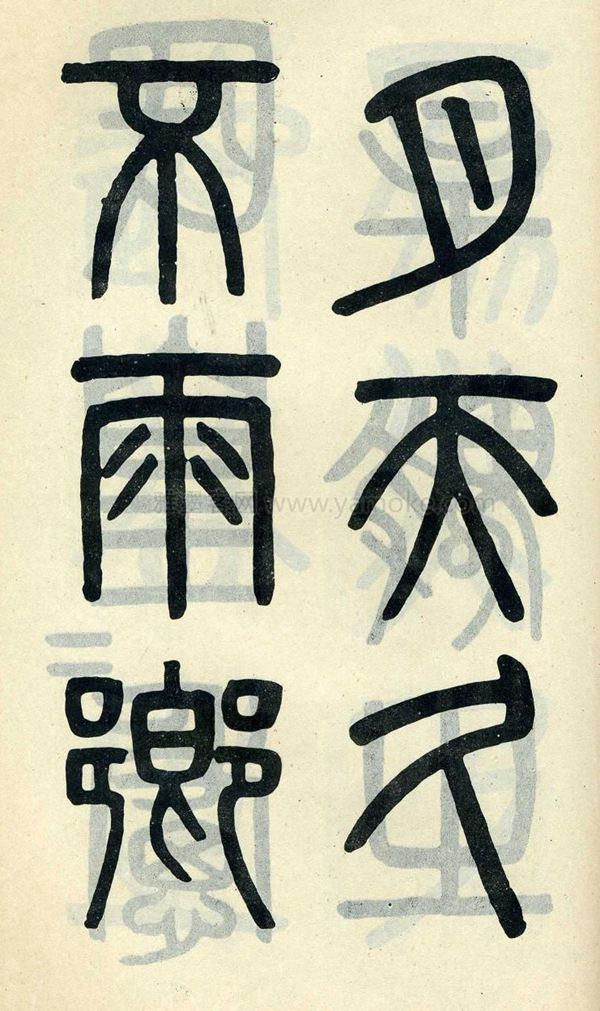 月天久
不雨鄉
www.yamoke.com